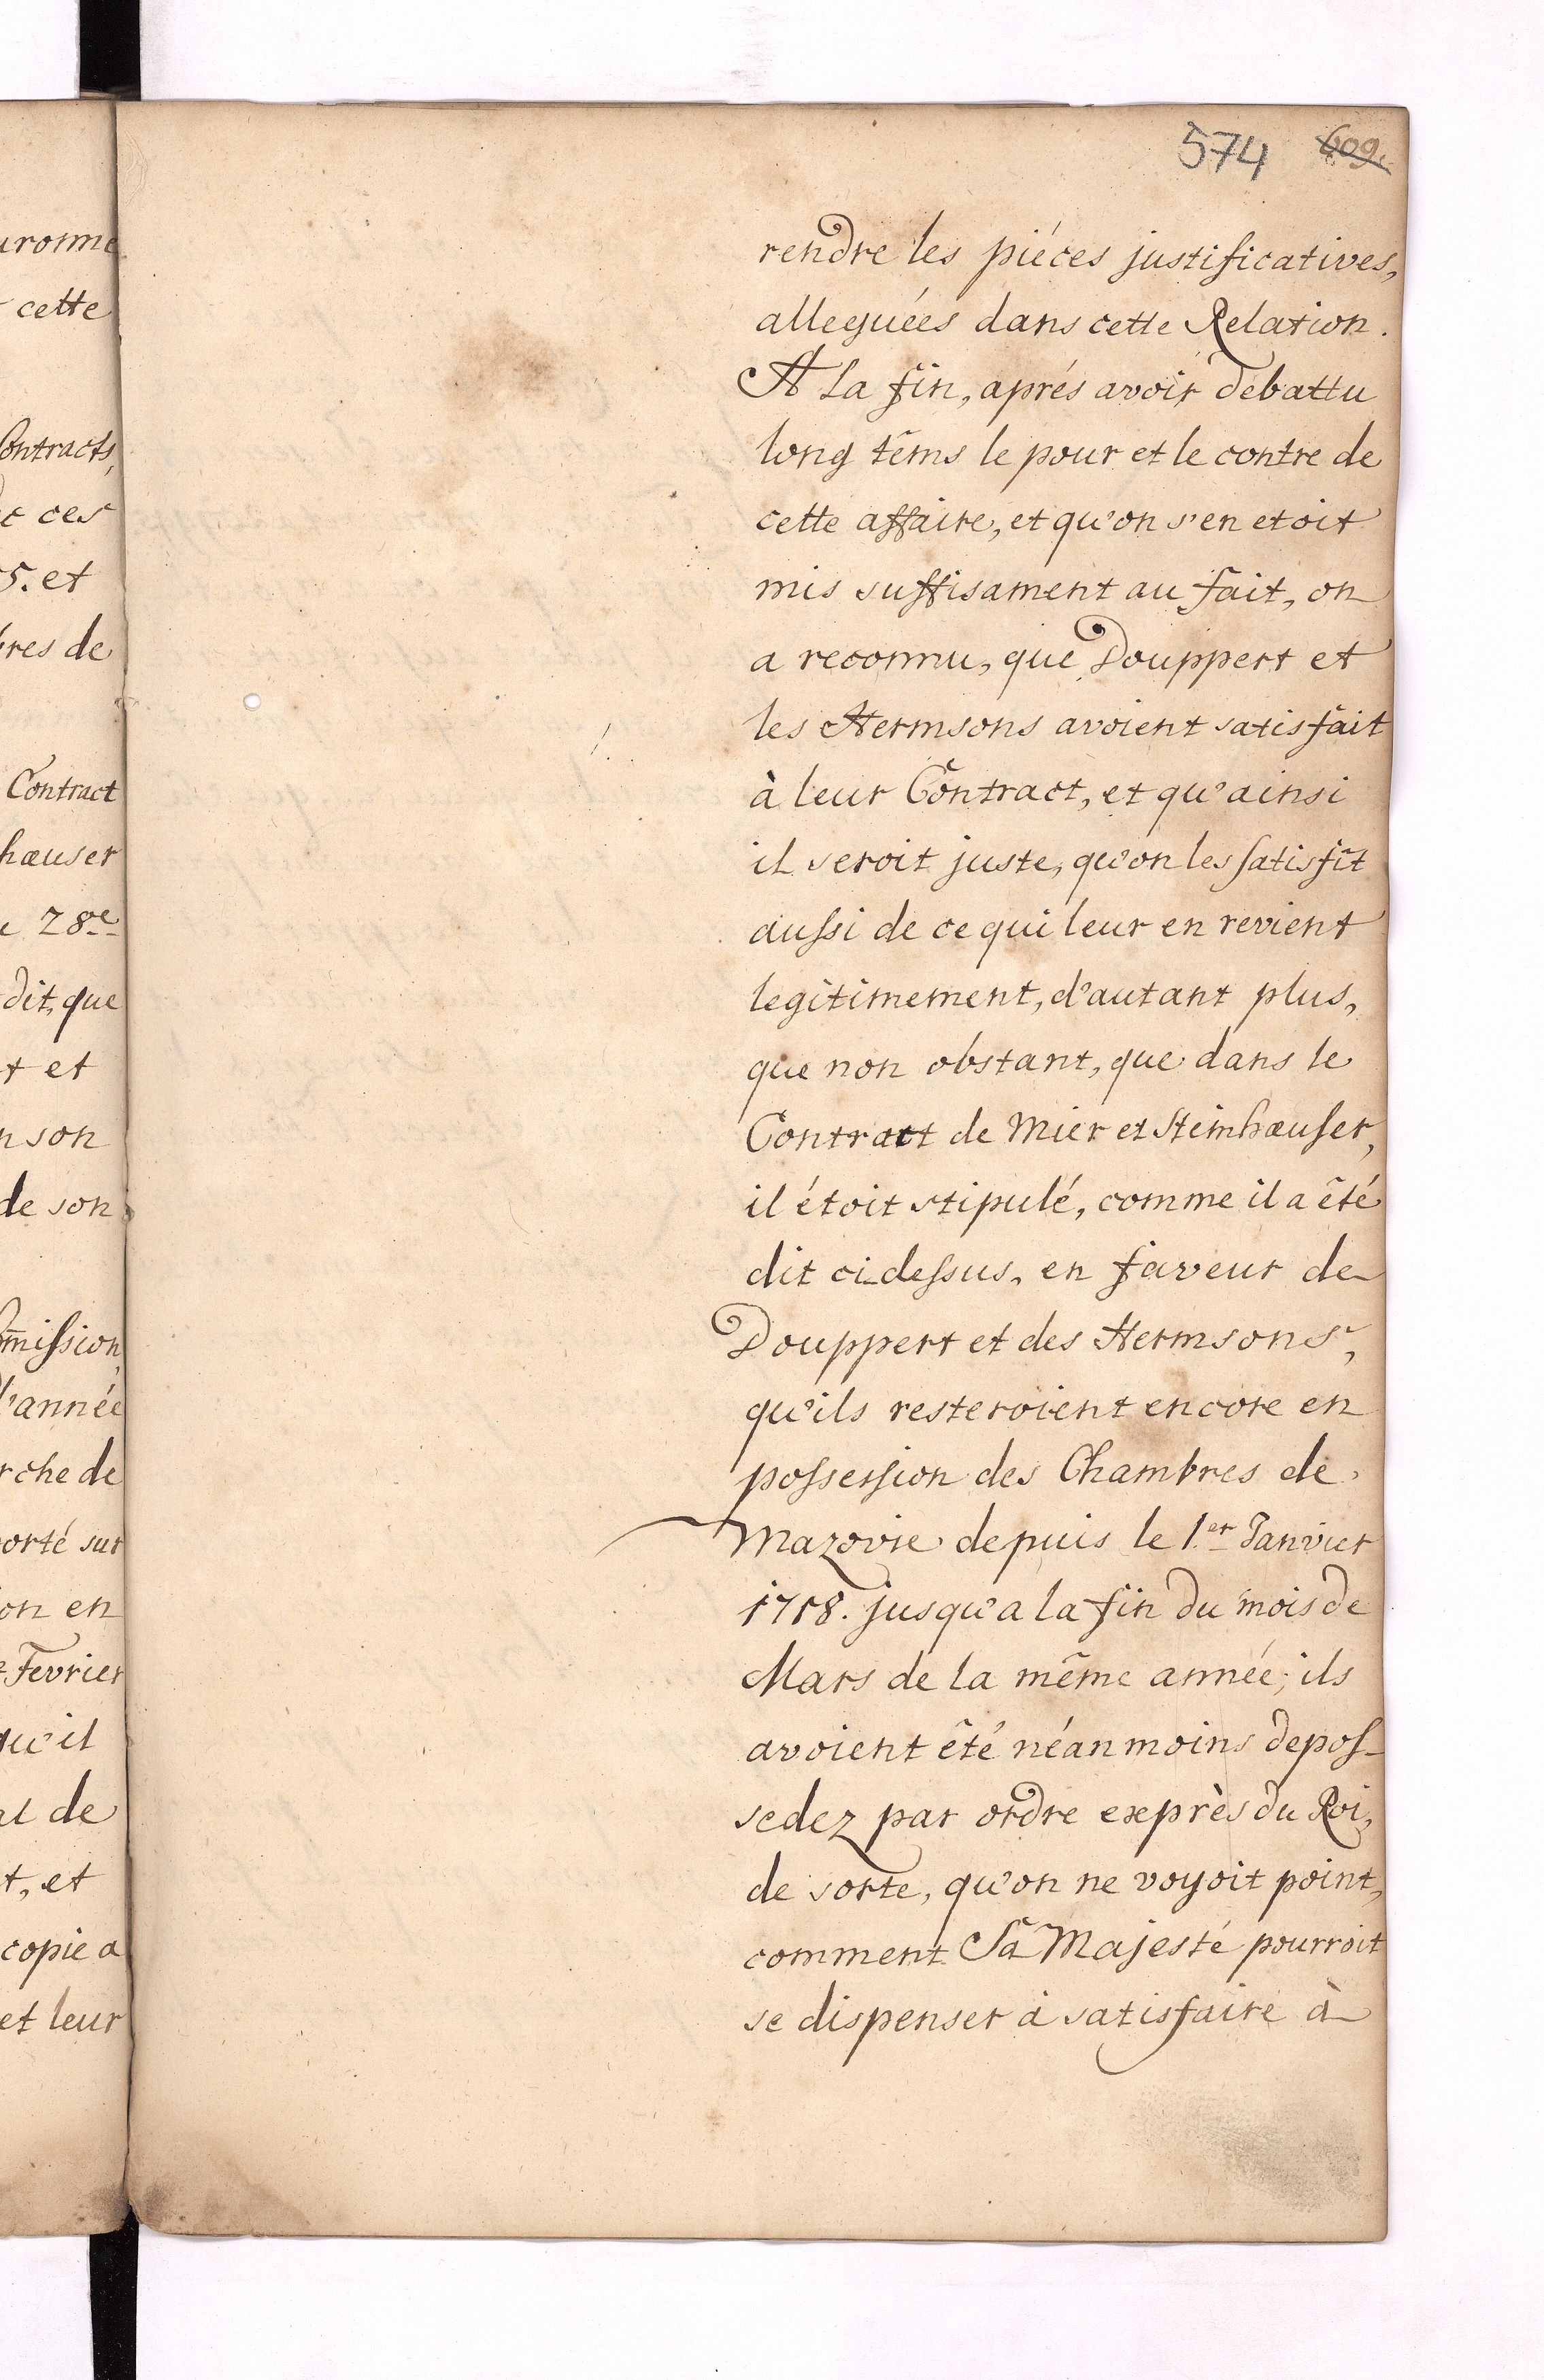 574 609.
rendre les piéces justificatives,
alleguées dans cette Relation.
A la fin, aprés avoir debattu
long têms le pour et le contre de
cette affaire, et qu'on s'en etoit
mis suffisament au fait, on
a reconnu, que Douppert et
les Hermsons avoient satisfait
à leur Contract, et qu'ainsi
il seroit juste, qu'on les satisfît
aussi de ce qui leur en revient
legitimement, d'autant plus,
que non obstant, que dans le
Contract de Mier et Steinhæuser,
il étoit stipulé, comme il a êté
dit ci-dessus, en faveur de
Douppert et des Hermsons,
qu'ils resteroient encore en
possession des Chambres de
Mazovie depuis le 1.er Janvier
1718. jusqu'a la fin du mois de
Mars de la même année; ils
avoient êté néanmoins depos-
sedez par ordre exprès du Roi,
de sorte, qu'on ne voyoit point,
comment Sa Majesté pourroit
se dispenser à satisfaire à
uronne
cette
Contracts,
ces
5. et
bres de
Contract
hæuser
28e
dit, que
et
son
de son
mission,
l'année
rche de
orté sur
on en
Fevrier
qu'il
al de
t, et
copie a
et leur